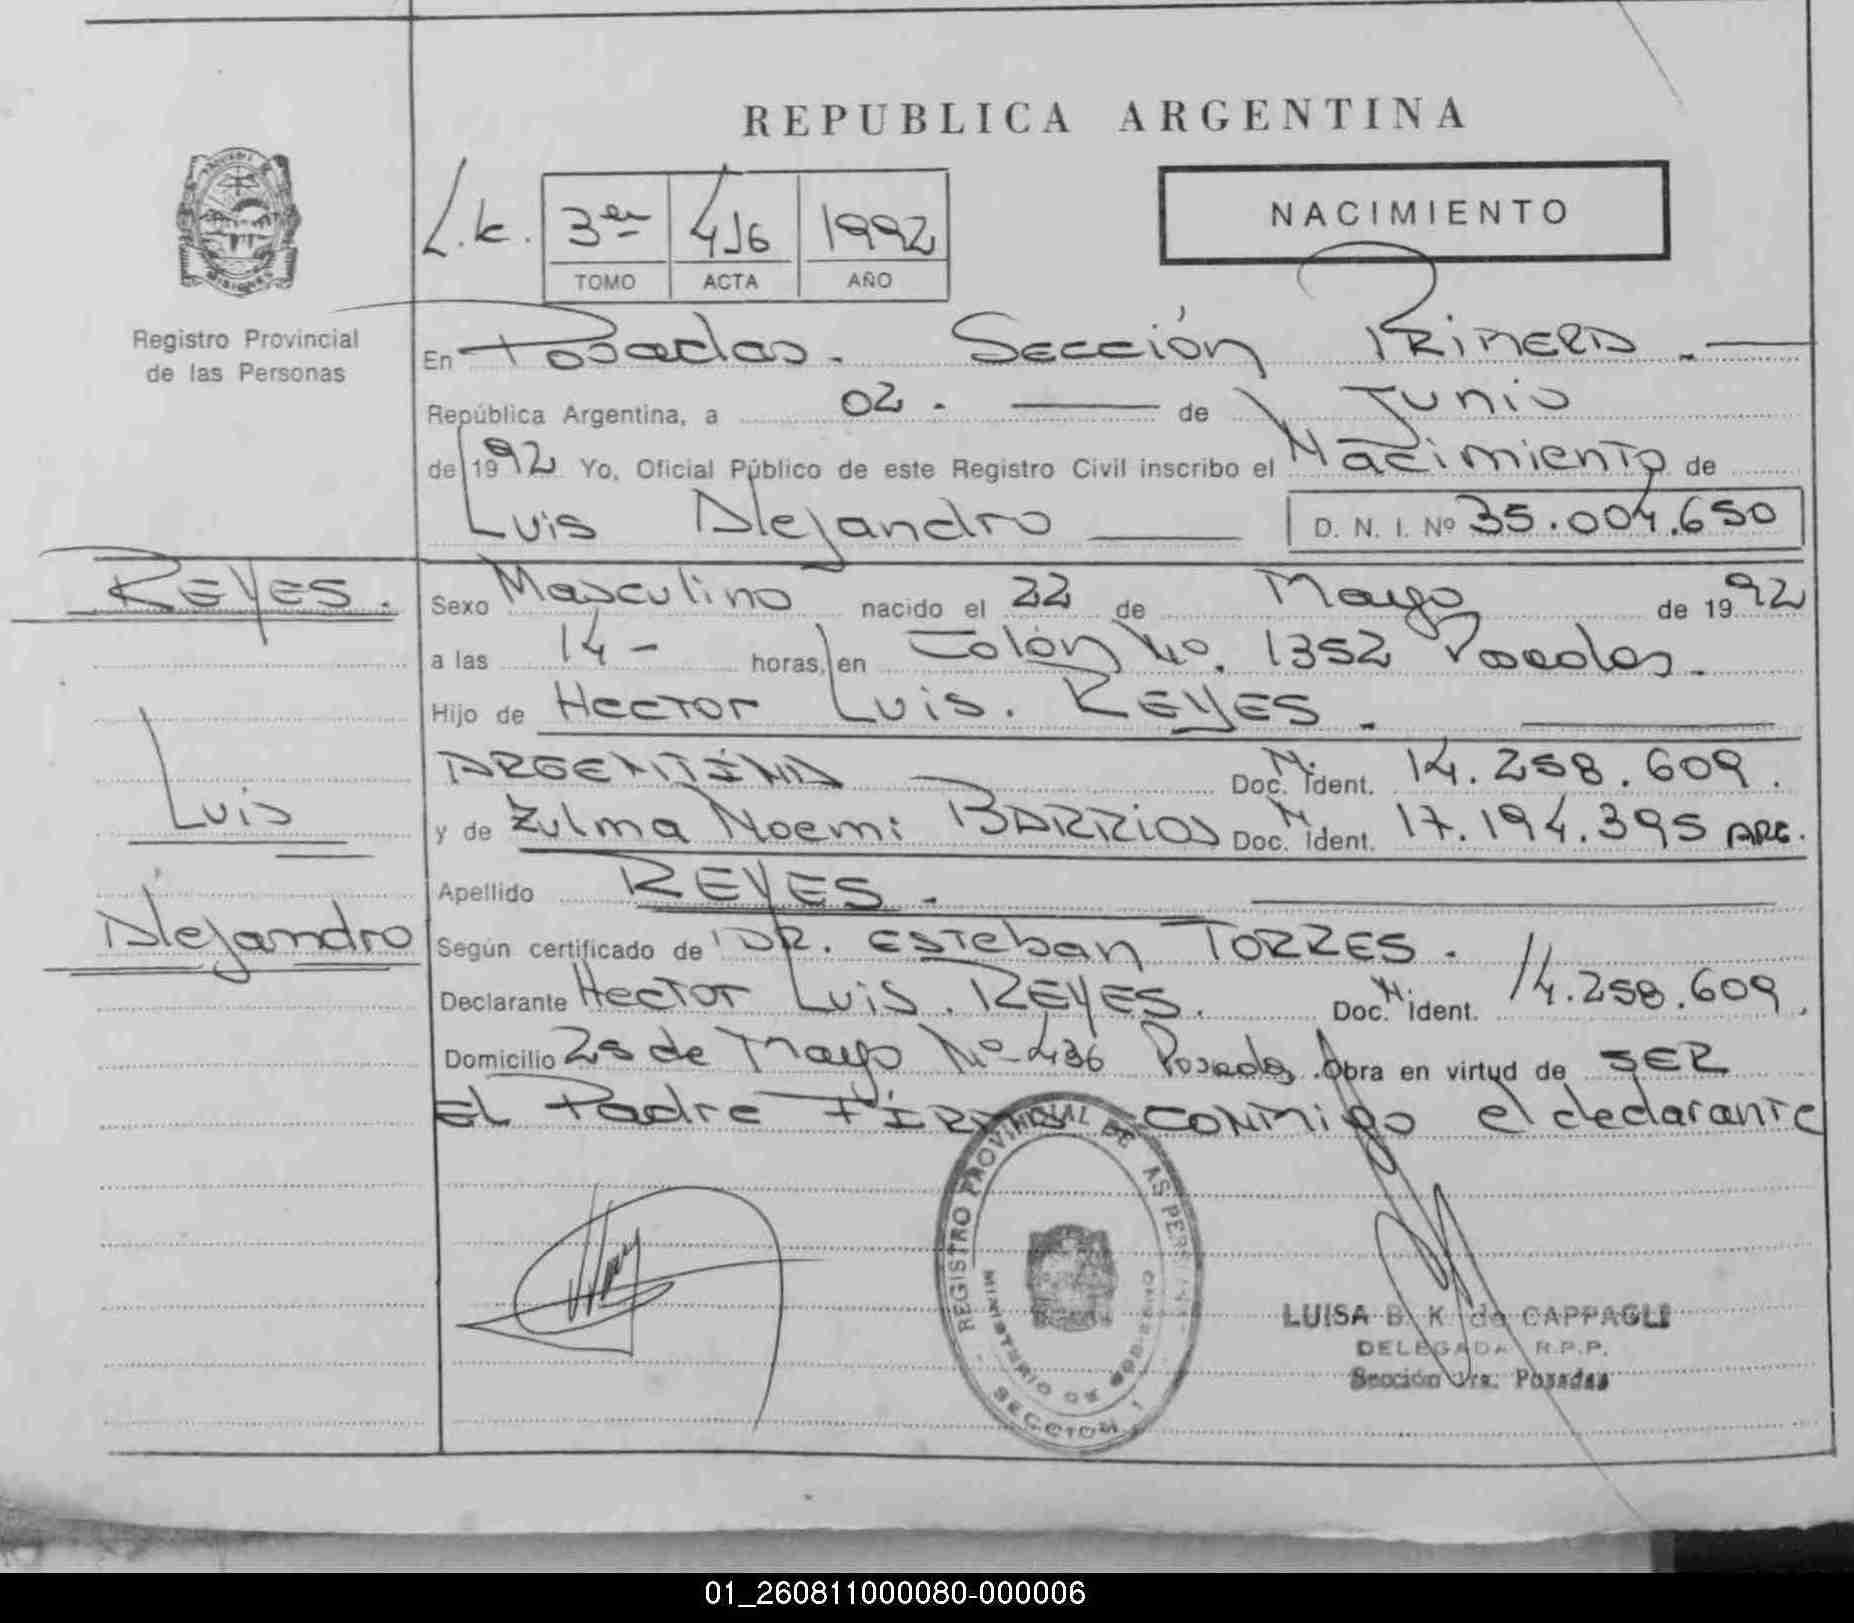 REPUBLICA ARGENTINA
NACIMIENTO
L.k. 3er 1992
TOMO ACTA AÑO
Registro Provincial
de las Personas
En Posadas. Sección Primera.
República Argentina, a 02. de Junio
de 1992 Yo, Oficial Público de este Registro Civil inscribo el Nacimiento de
Luis Alejandro D. N. I. Nº 35.004.650
REYES.
Sexo Masculino nacido el 22 de Mayo de 1992
a las 14 - horas, en Colón No. 1352 Posadas.
Hijo de Hector Luis. REYES.
ARGENTINA Doc. N. Ident. 14.258.609.
Luis
y de Zulma Noemi BARRIOS Doc. N Ident. 17.194.395 ARG.
Apellido REYES.
Alejandro
Según certificado de DR. Esteban TORRES.
Declarante Hector Luis. REYES. Doc. N. Ident. 14.258.609.
Domicilio 25 de Mayo Nº 436 Posadas. Obra en virtud de SER
El Padre FIRMA CONMigo el declarante
REGISTRO PROVINCIAL DE LAS PERSONAS
MINISTERIO DE GOBIERNO
SECCION 1
LUISA B. K. de CAPPAGLI
DELEGADA R.P.P.
Sección 1ra. Posadas
01_260811000080-000006